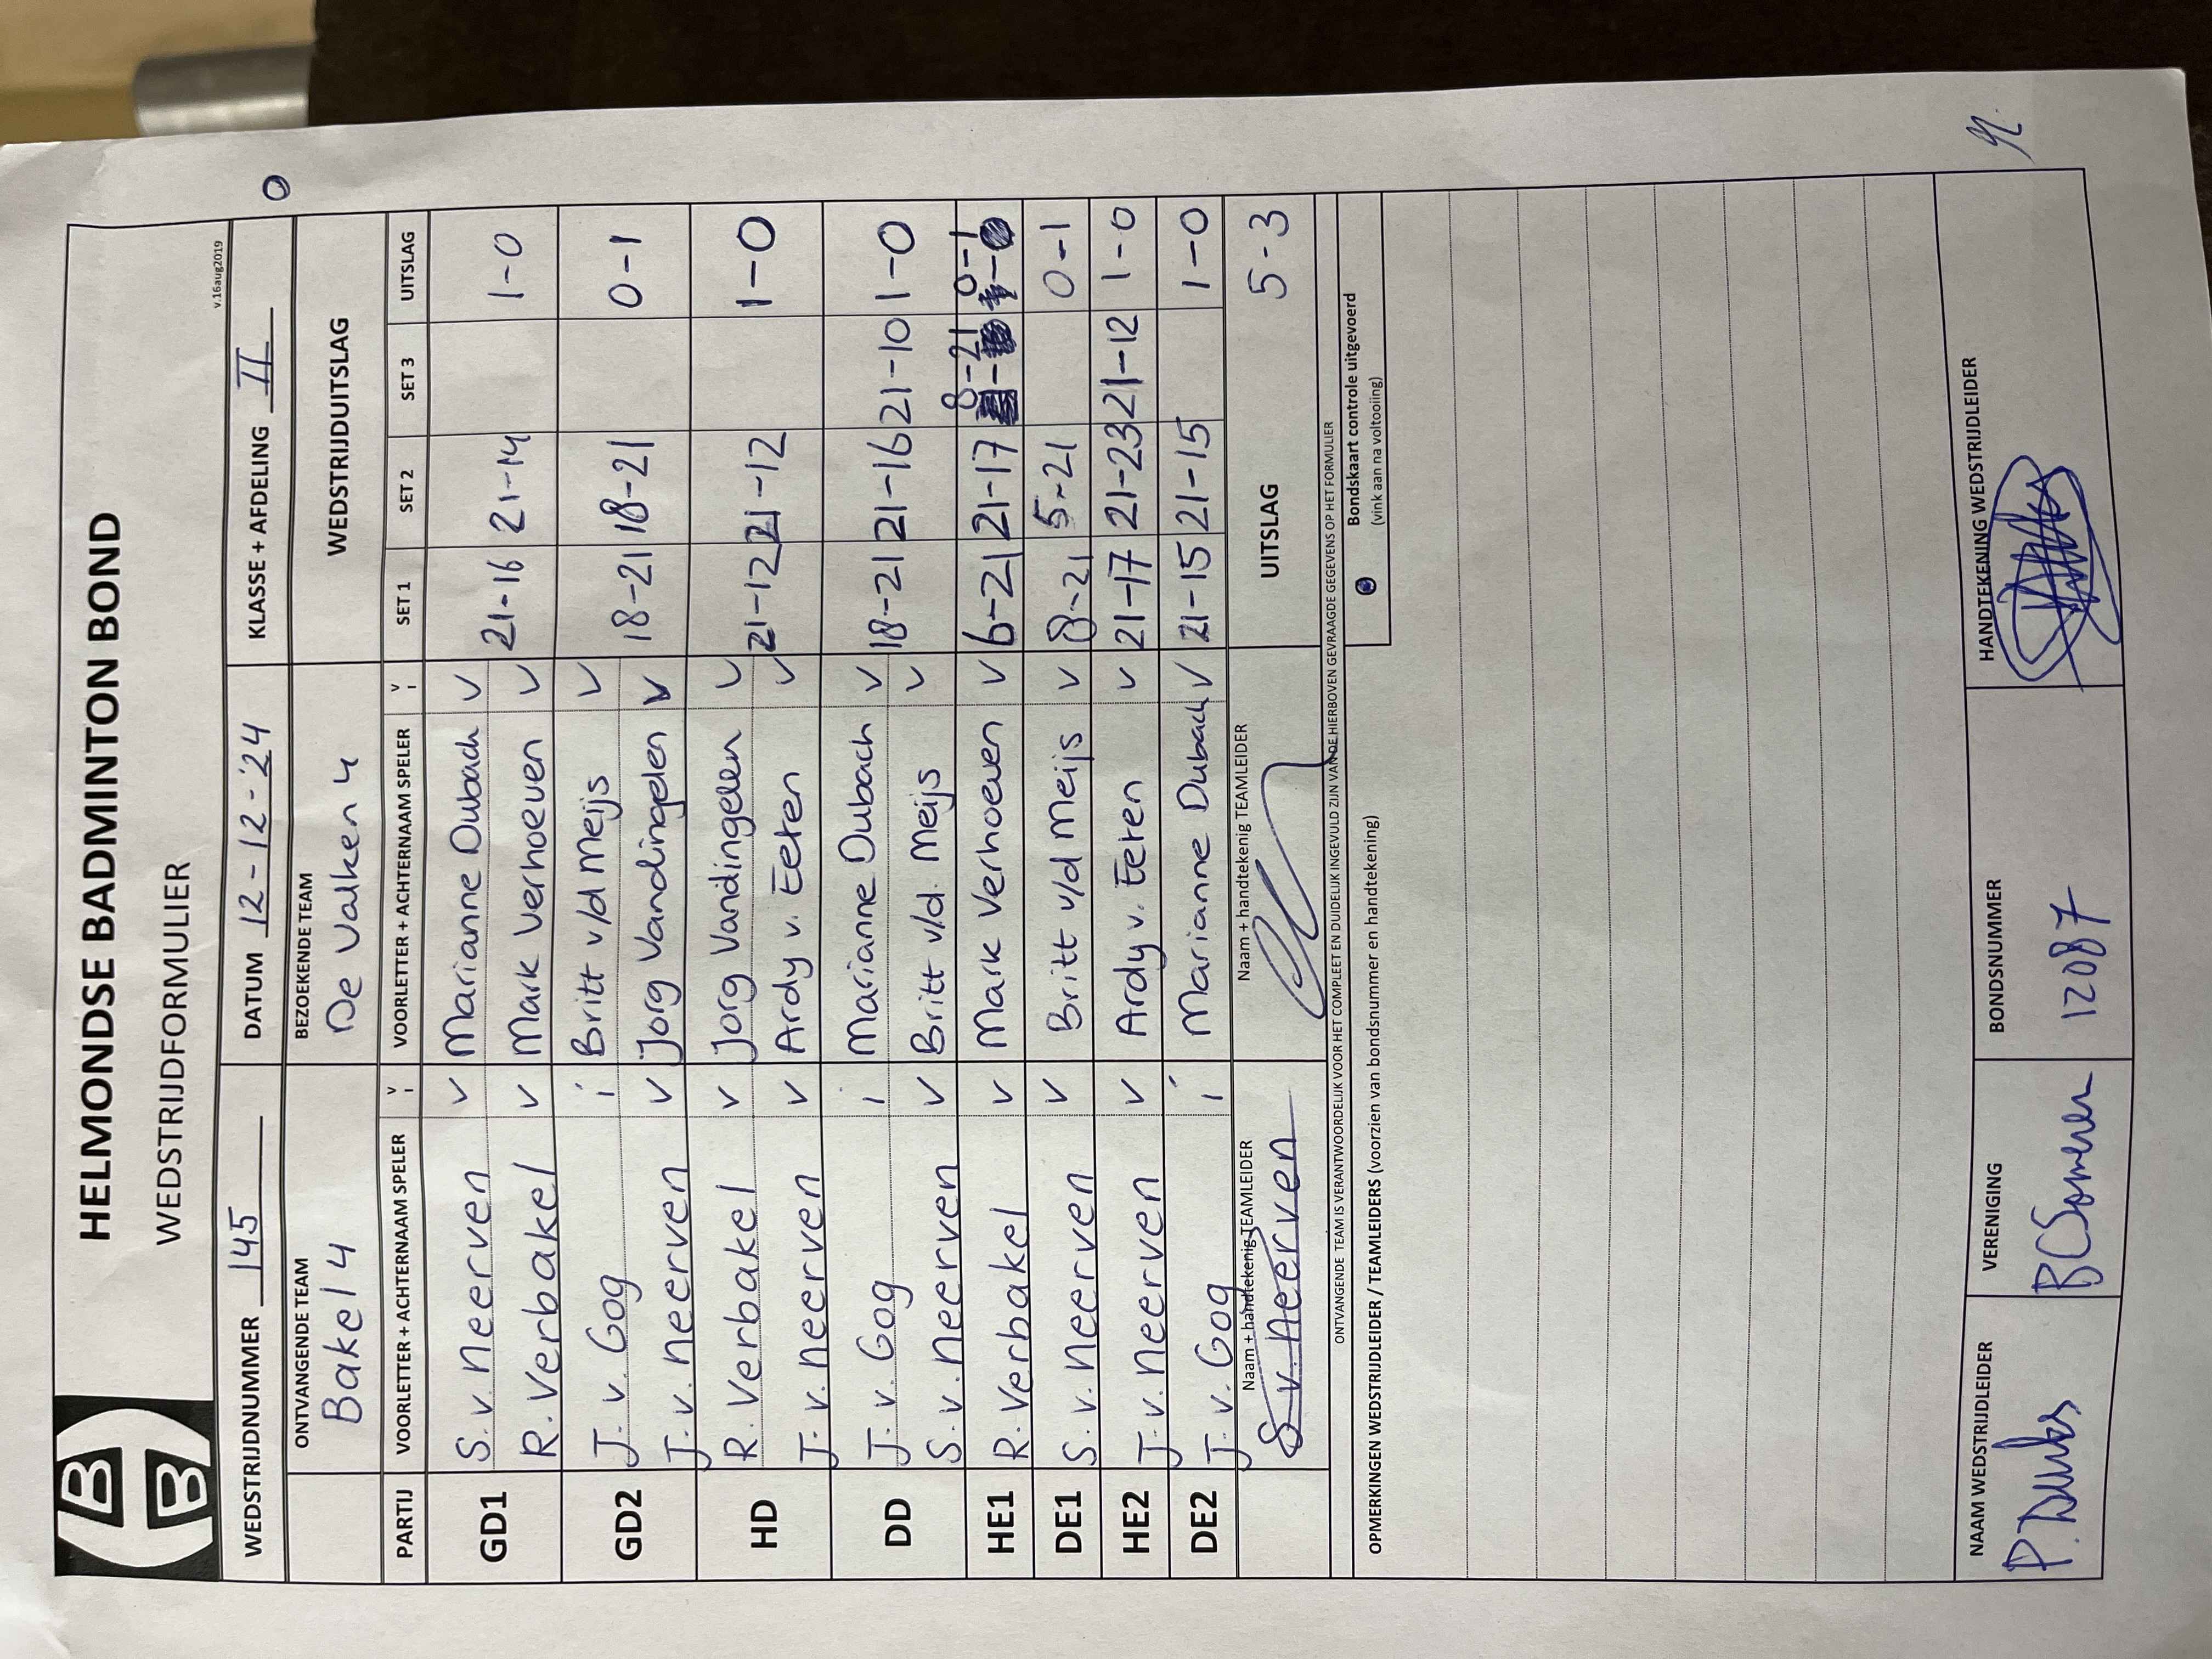 HELMONDSE BADMINTON BOND
WEDSTRIJDFORMULIER
v.16aug2019
WEDSTRIJDNUMMER 145 DATUM 12-12-'24 KLASSE + AFDELING II 0
ONTVANGENDE TEAM BEZOEKENDE TEAM WEDSTRIJDUITSLAG
Bakel 4 De Valken 4
PARTIJ VOORLETTER + ACHTERNAAM SPELER V I VOORLETTER + ACHTERNAAM SPELER V I SET 1 SET 2 SET 3 UITSLAG
GD1 S. v. Neerven v Marianne Dubach v 21-16 21-14 1-0
R. Verbakel v Mark Verhoeven v
GD2 J. v. Gog i Britt v/d Meijs v 18-21 18-21 0-1
J. v. Neerven v Jorg Vandingelen v
HD R. Verbakel v Jorg Vandingelen v 21-12 21-12 1-0
J. v. Neerven v Ardy v. Eeten v
DD J. v. Gog i Marianne Dubach v 18-21 21-16 21-10 1-0
S. v. Neerven v Britt v/d. Meijs v
HE1 R. Verbakel v Mark Verhoeven v 6-21 21-17 8-21 0-1
DE1 S. v. Neerven v Britt v/d Meijs v 8-21 5-21 0-1
HE2 J. v. Neerven v Ardy v. Eeten v 21-17 21-23 21-12 1-0
DE2 J. v. Gog i Marianne Dubach v 21-15 21-15 1-0
Naam + handtekenig TEAMLEIDER Naam + handtekenig TEAMLEIDER UITSLAG 5-3
S. v. Neerven
ONTVANGENDE TEAM IS VERANTWOORDELIJK VOOR HET COMPLEET EN DUIDELIJK INGEVULD ZIJN VAN DE HIERBOVEN GEVRAAGDE GEGEVENS OP HET FORMULIER
Bondskaart controle uitgevoerd
(vink aan na voltooiing)
OPMERKINGEN WEDSTRIJDLEIDER / TEAMLEIDERS (voorzien van bondsnummer en handtekening)
NAAM WEDSTRIJDLEIDER VERENIGING BONDSNUMMER HANDTEKENING WEDSTRIJDLEIDER
BC Someren 12087